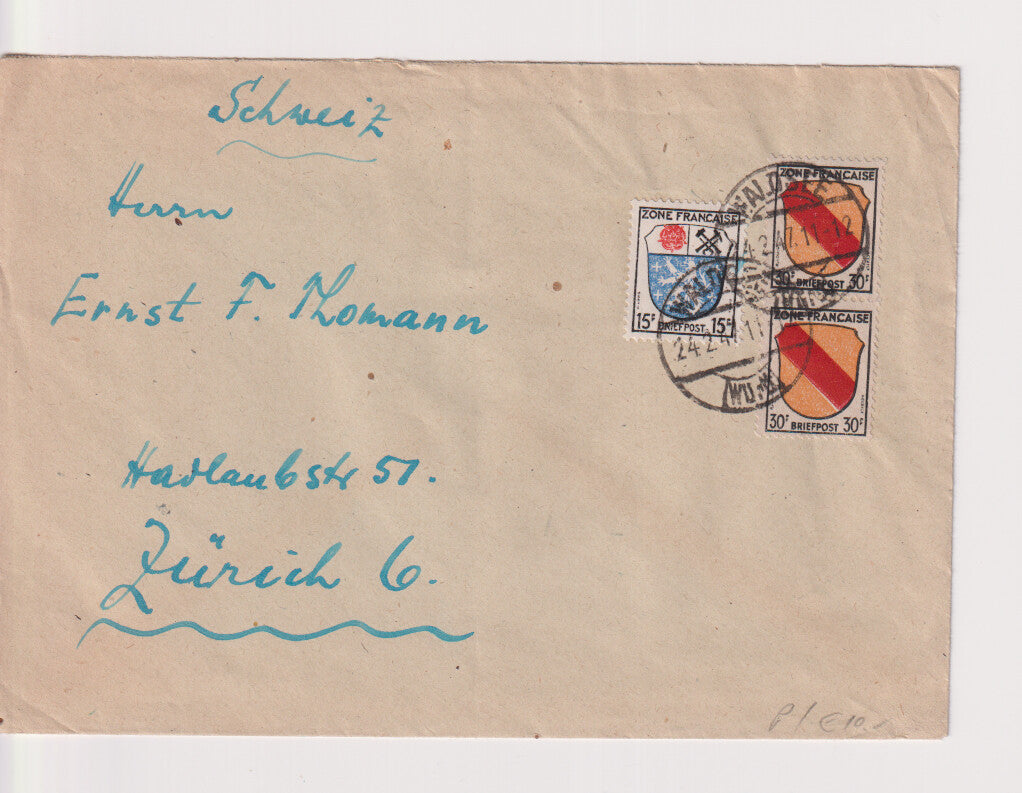 Schweiz
Herrn
Ernst F. Thomann
Hadlaubstr 51.
Zürich 6.
ZONE FRANCAISE
15F BRIEFPOST 15F
ZONE FRANÇAISE
30F BRIEFPOST 30F
ZONE FRANÇAISE
30F BRIEFPOST 30F
WALDSEE
24.2.47.11-12
(WÜRTT)
WALDSEE
24.2.47.11
(WÜRTT)
€10.